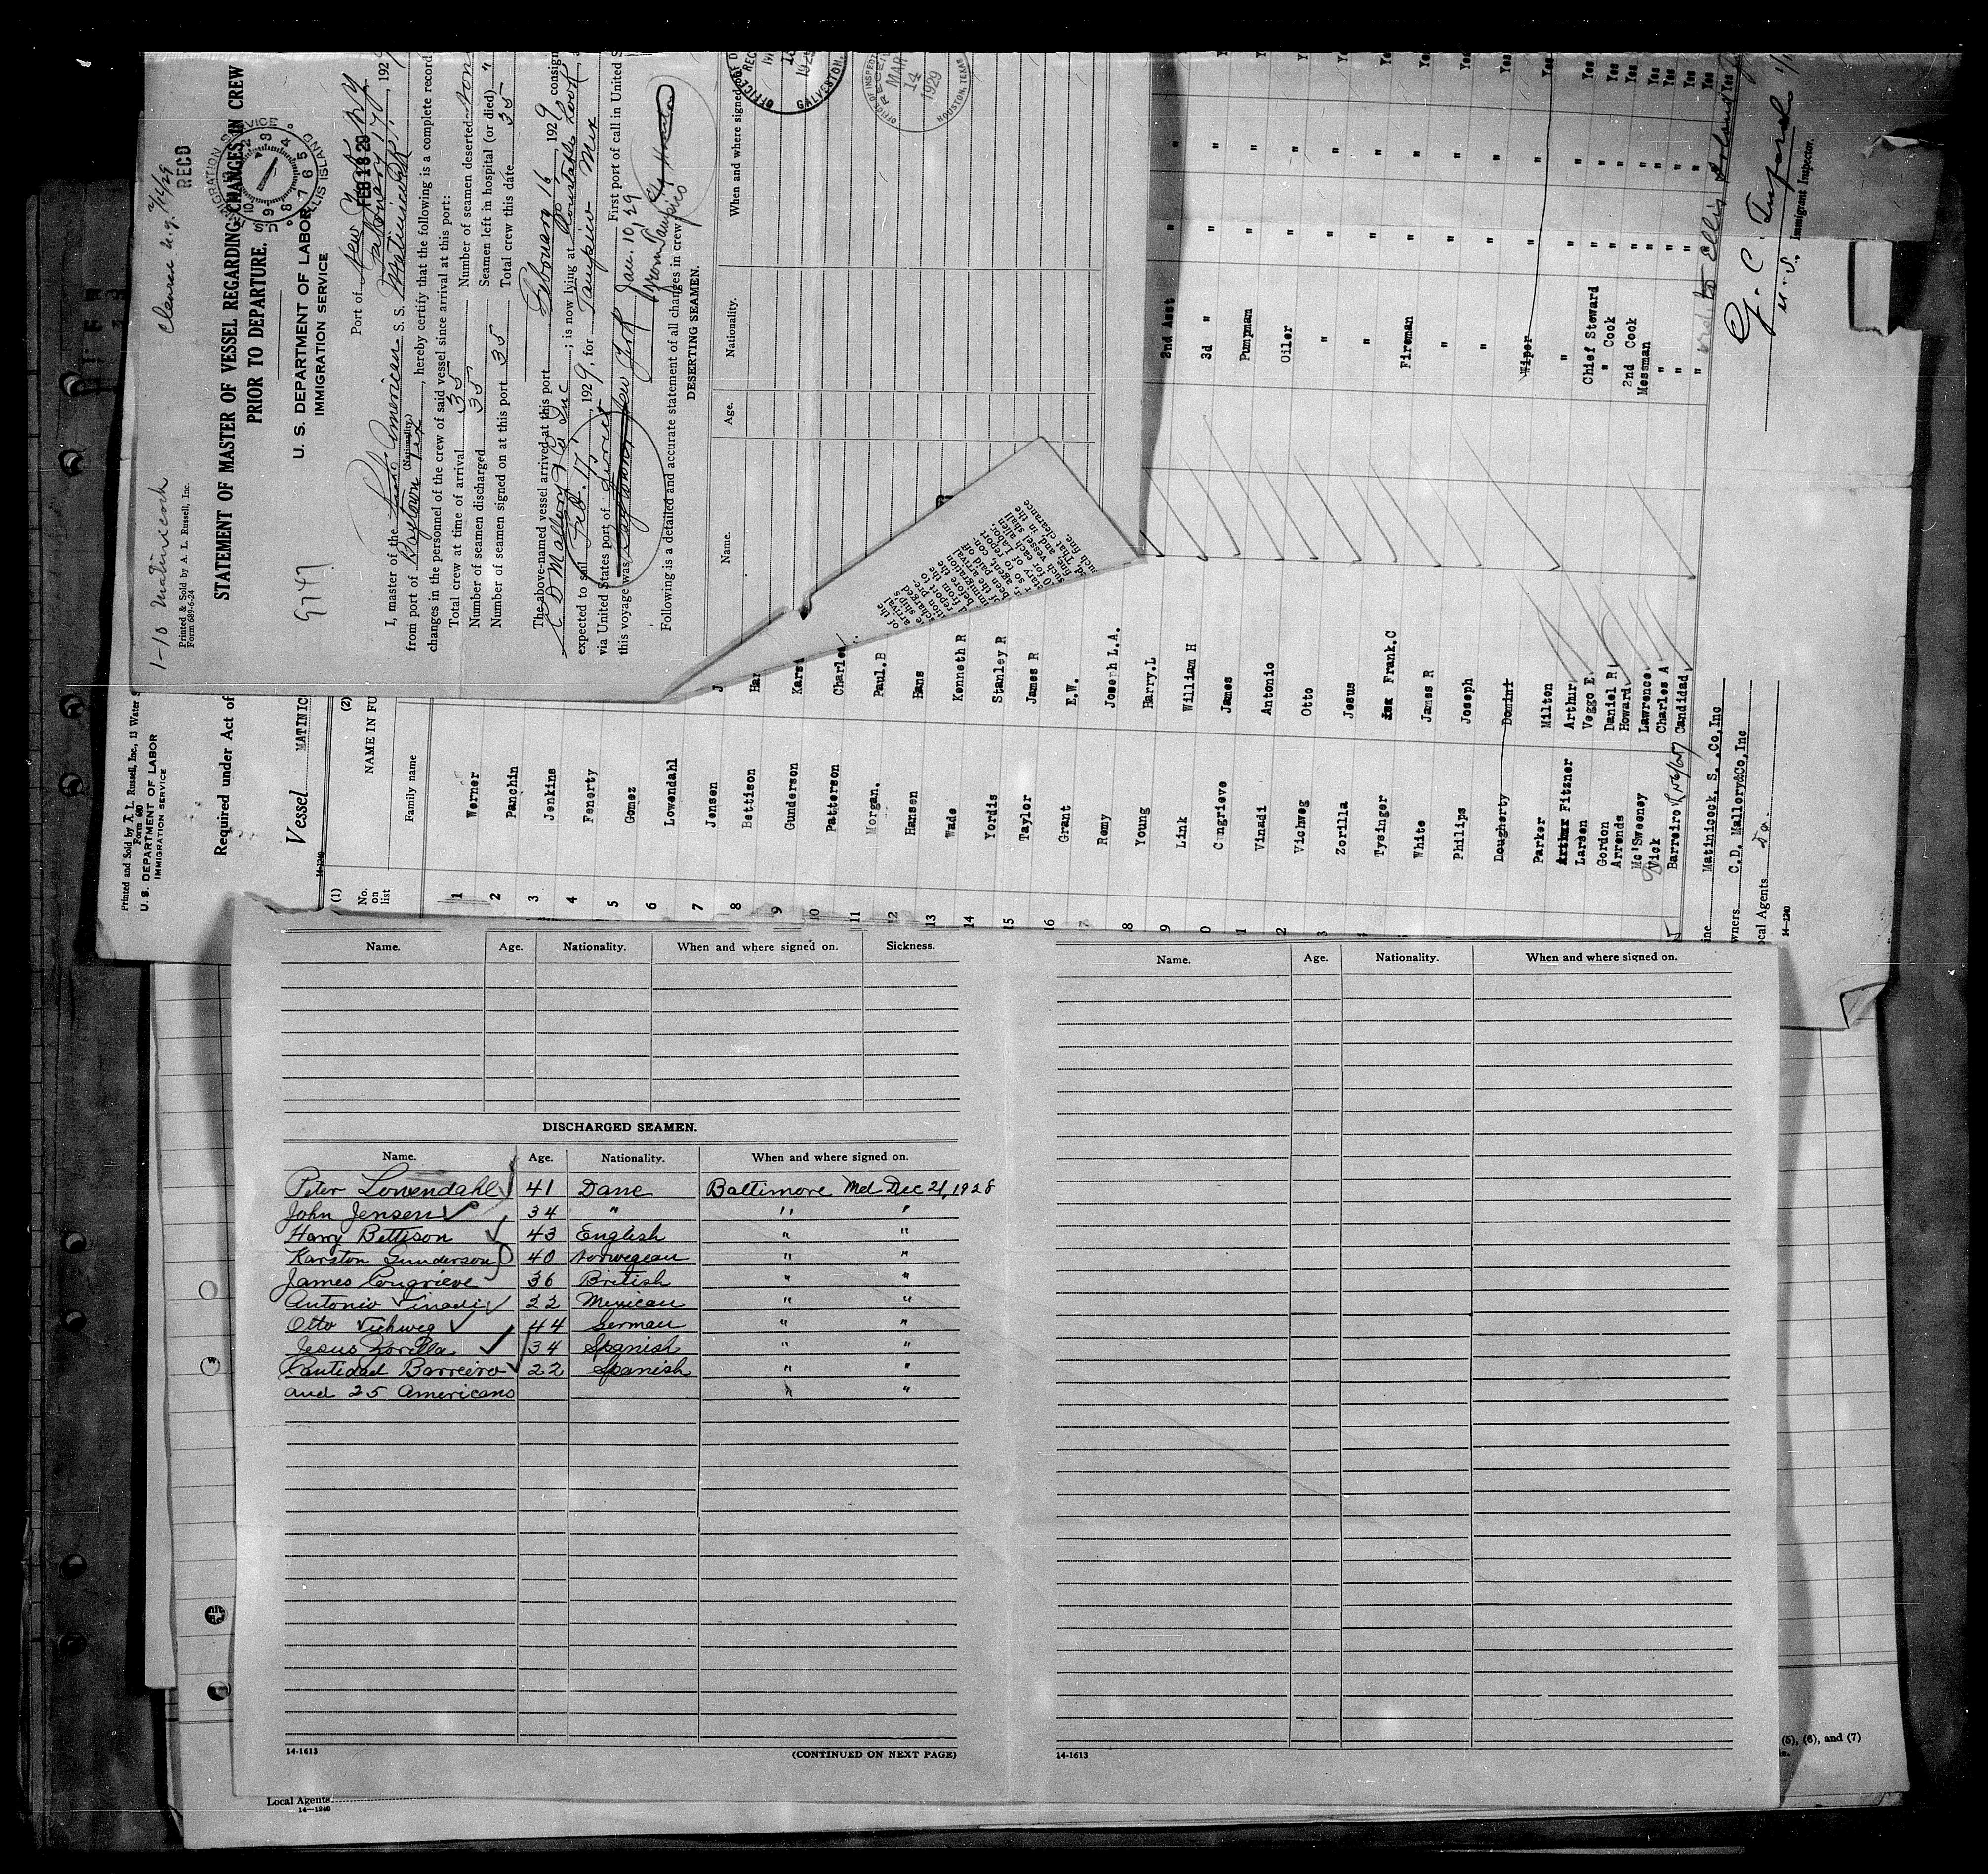 1-10 Matinicock
Cleared N.Y. 2/16/29
RECD
Printed & Sold by A. L. Russell, Inc.
Form 689-6-24
9747
STATEMENT OF MASTER OF VESSEL REGARDING CHANGES IN CREW
PRIOR TO DEPARTURE.
U. S. DEPARTMENT OF LABOR
IMMIGRATION SERVICE
IMMIGRATION SERVICE
ELLIS ISLAND
FEB 18 29
Port of New York NY
192
I, master of the American S. S. Matinicock
(Nationality)
from port of Baytown Tex, hereby certify that the following is a complete record
changes in the personnel of the crew of said vessel since arrival at this port:
Total crew at time of arrival 35 Number of seamen deserted none
Number of seamen discharged 35 Seamen left in hospital (or died) "
Number of seamen signed on at this port 35 Total crew this date 35
The above-named vessel arrived at this port February 16, 1929 consign
C D Mallory & Co Inc; is now lying at Constable Hook
expected to sail Feb. 17, 1929, for Tampico Mex
via United States port of direct First port of call in United S
this voyage was Baytown New York Jan. 10, 29
from Tampico
Following is a detailed and accurate statement of all changes in crew
DESERTING SEAMEN.
Name. Age. Nationality. When and where signed on.
GALVESTON,
OFFICE OF INSPECT
RECEIVED
MAR
14
1929
HOUSTON, TEXAS
Printed and Sold by A. L. Russell, Inc., 13 Water S
Form 680
U. S. DEPARTMENT OF LABOR
IMMIGRATION SERVICE
Required under Act of
Vessel MATINIC
14-1240
(1) (2)
No. on list
NAME IN FU
Family name
1 Werner
2 Panchin
3 Jenkins
4 Fenerty
5 Gomez
6 Lowendahl
7 Jensen J
8 Bettison Har
9 Gunderson Karst
10 Patterson Charles
11 Morgan. Paul.B
12 Hansen Hans
13 Wade Kenneth R
14 Yordis Stanley R
15 Taylor James R
16 Grant E.W.
7 Remy Joseph L.A.
8 Young Harry.L
9 Link William H 2nd Asst " " Yes
0 Congrieve James 3d " " " Yes
1 Vinadi Antonio Pumpman " " Yes
2 Vichweg Otto Oiler " " Yes
3 Zorilla Jesus " " " Yes
Tysinger Frank.C " " " Yes
White James R Fireman " " Yes
Philips Joseph " " " Yes
Dougherty Domini " " " Yes
Parker Milton Wiper " " Yes
Arthur Fitzner Arthur " " " Yes
Larsen Veggo E. Chief Steward " " Yes
Gordon Daniel R " Cook " " Yes
Arrends Howard 2nd Cook " " Yes
Mc'Sweeney Lawrence Messman " " Yes
Vick Charles A " " " Yes
5 Barreiro Candidad " " " Yes
to Ellis Island
ine Matinicock. S. .Co,Inc
wners C.D. Mallory&Co,Inc
ocal Agents Do.
14-1240
U. S. Immigrant Inspector.
Name. Age. Nationality. When and where signed on. Sickness.
DISCHARGED SEAMEN.
Name. Age. Nationality. When and where signed on.
Peter Lowendahl 41 Dane Baltimore Md Dec 21, 1928
John Jensen 34 " " "
Harry Bettison 43 English " "
Karston Gunderson 40 Norwegean " "
James Congrieve 36 British " "
Antonio Vinadi 22 Mexican " "
Otto Vichweg 44 German " "
Jesus Zorilla 34 Spanish " "
Cantidad Barreiro 22 Spanish " "
and 25 Americans " "
14-1613
(CONTINUED ON NEXT PAGE)
Name. Age. Nationality. When and where signed on.
14-1613
(5), (6), and (7)
Local Agents
14-1240